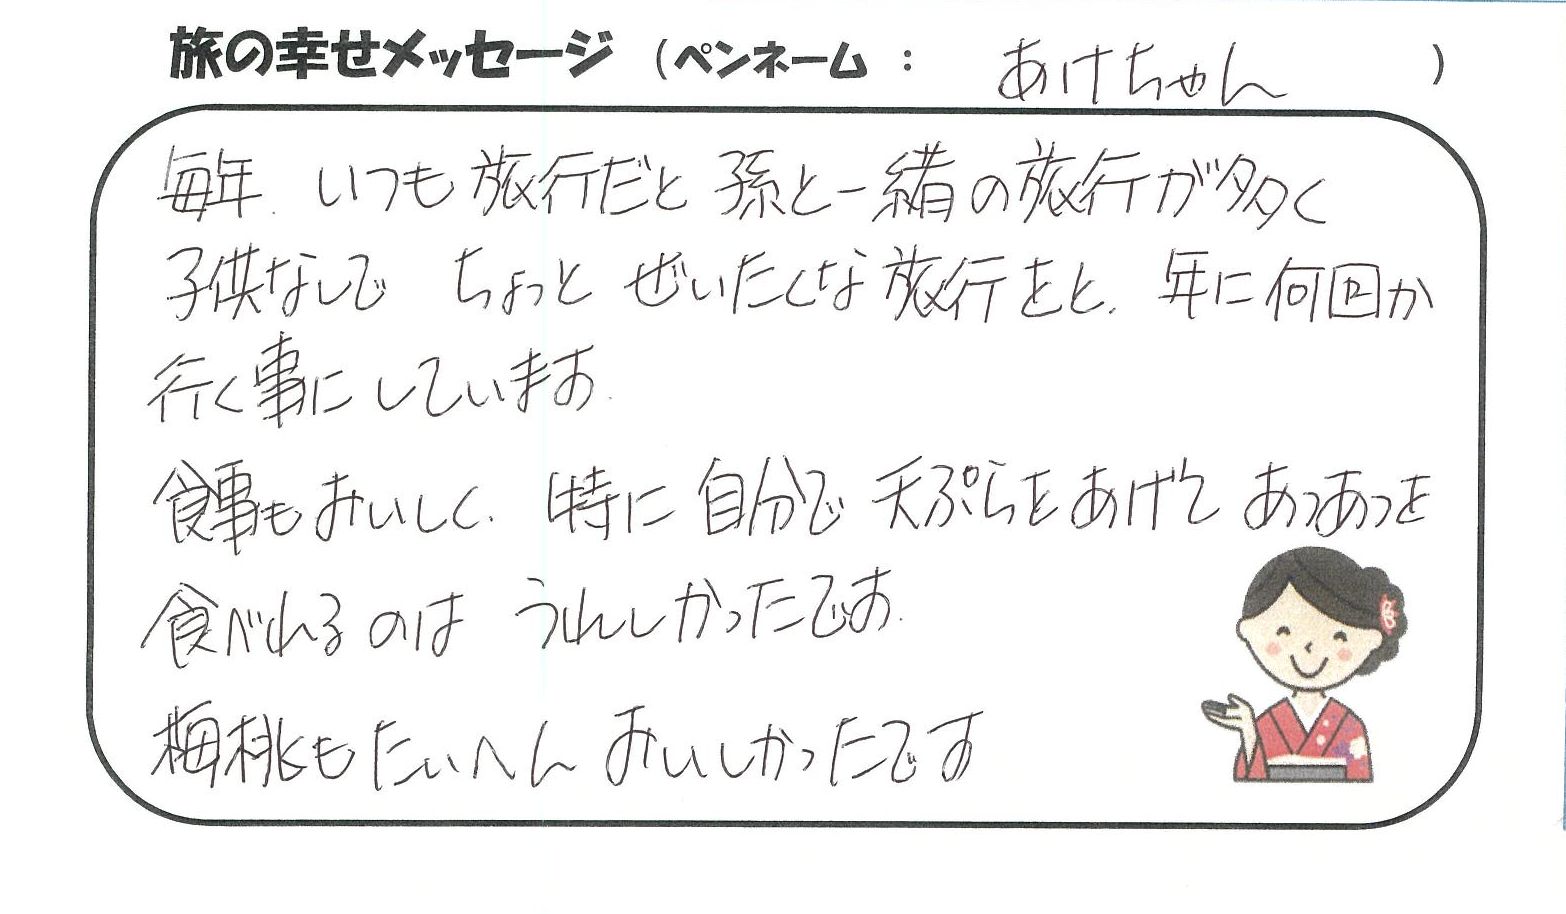 旅の幸せメッセージ (ペンネーム : あけちゃん )
毎年、いつも旅行だと孫と一緒の旅行が多く
子供なしで ちょっと ぜいたくな旅行をと、年に何回か
行く事にしています。
食事もおいしく、特に自分で天ぷらをあげて あつあつを
食べれるのは うれしかったです。
梅桃もたいへん おいしかったです